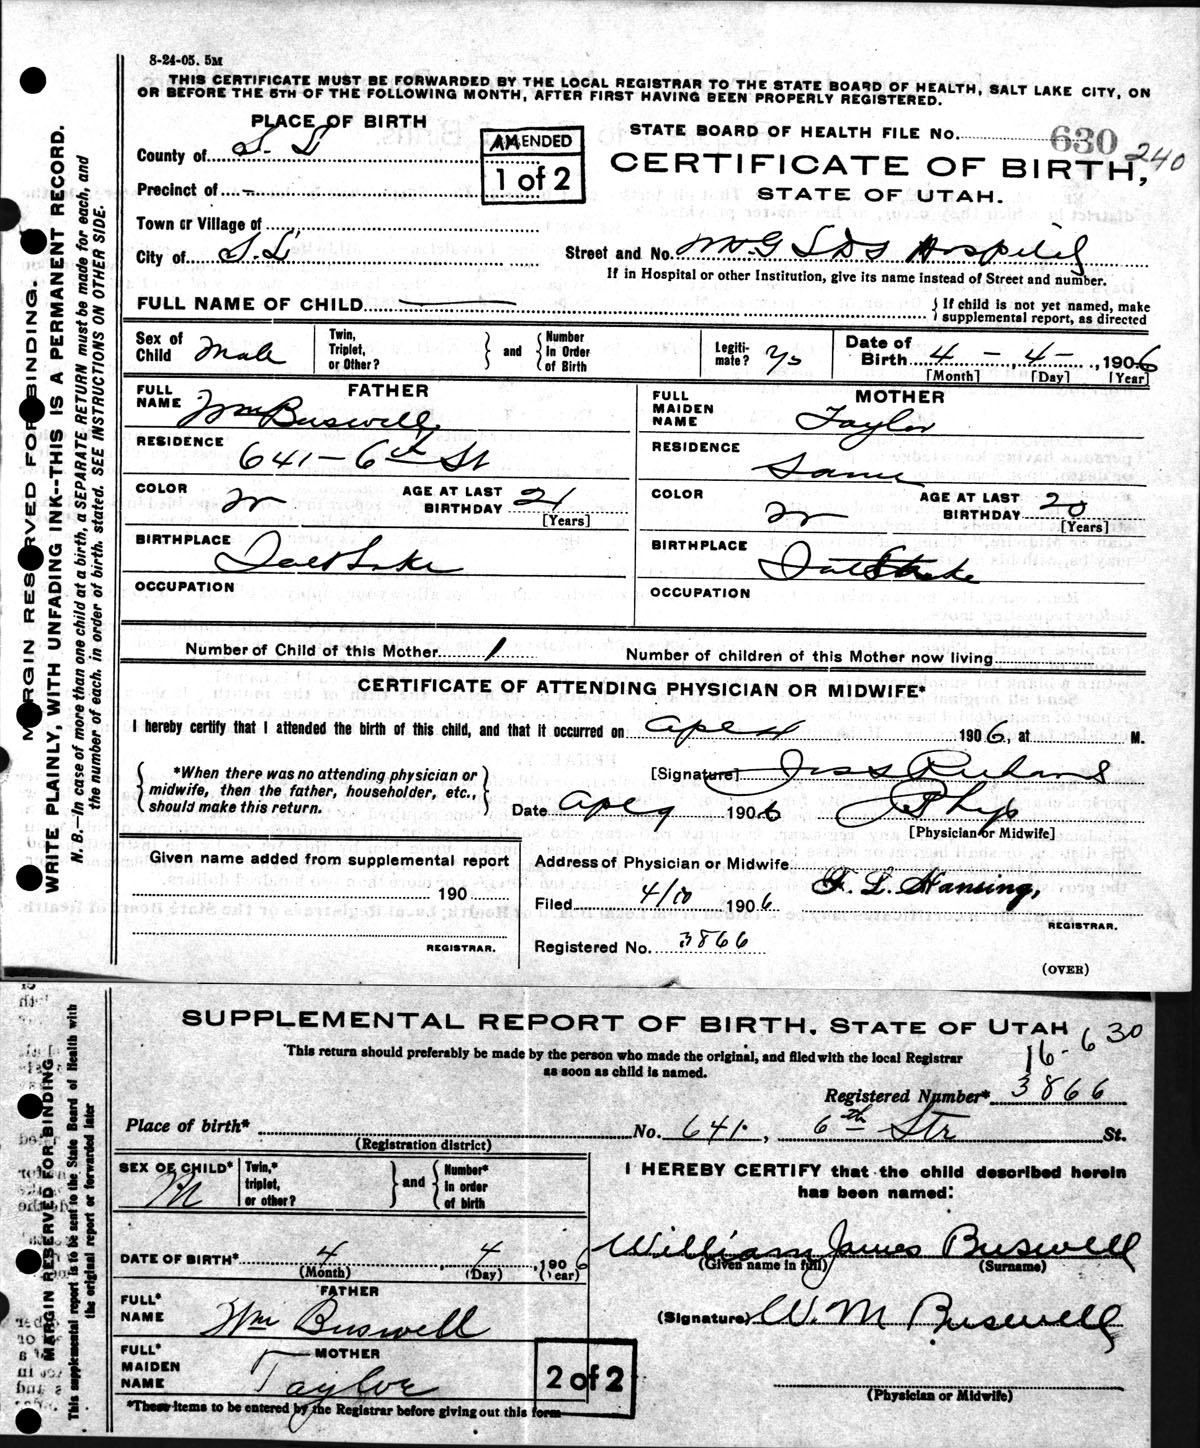 8-24-05. 5M
THIS CERTIFICATE MUST BE FORWARDED BY THE LOCAL REGISTRAR TO THE STATE BOARD OF HEALTH, SALT LAKE CITY, ON
OR BEFORE THE 5TH OF THE FOLLOWING MONTH, AFTER FIRST HAVING BEEN PROPERLY REGISTERED.
PLACE OF BIRTH
County of S. L
Precinct of -
Town or Village of
City of S.L.
AMENDED
1 of 2
STATE BOARD OF HEALTH FILE No. 630 240
CERTIFICATE OF BIRTH,
STATE OF UTAH.
Street and No. LDS Hospital
If in Hospital or other Institution, give its name instead of Street and number.
FULL NAME OF CHILD
{ If child is not yet named, make
supplemental report, as directed
Sex of Child Male
Twin, Triplet, or Other? } and { Number In Order of Birth
Legiti-mate? Ys
Date of Birth 4 - , 4 - , 1906
[Month] [Day] [Year]
FATHER
FULL NAME Wm Buswell
RESIDENCE 641 - 6th St
COLOR W
AGE AT LAST BIRTHDAY 21
[Years]
BIRTHPLACE Salt Lake
OCCUPATION
MOTHER
FULL MAIDEN NAME Taylor
RESIDENCE Same
COLOR W
AGE AT LAST BIRTHDAY 20
[Years]
BIRTHPLACE Salt Lake
OCCUPATION
Number of Child of this Mother 1
Number of children of this Mother now living
CERTIFICATE OF ATTENDING PHYSICIAN OR MIDWIFE*
I hereby certify that I attended the birth of this child, and that it occurred on Apr 4 1906, at M.
{ *When there was no attending physician or
midwife, then the father, householder, etc.,
should make this return. }
[Signature]
Date Apr 9 1906 Phys
[Physician or Midwife]
Given name added from supplemental report
190
REGISTRAR.
Address of Physician or Midwife
Filed 4/10 1906 F. L. Hansing,
REGISTRAR.
Registered No. 3866
(OVER)
MARGIN RESERVED FOR BINDING.
WRITE PLAINLY, WITH UNFADING INK--THIS IS A PERMANENT RECORD.
N. B.—In case of more than one child at a birth, a SEPARATE RETURN must be made for each, and
the number of each, in order of birth, stated. SEE INSTRUCTIONS ON OTHER SIDE.
SUPPLEMENTAL REPORT OF BIRTH, STATE OF UTAH
16-630
This return should preferably be made by the person who made the original, and filed with the local Registrar
as soon as child is named.
Registered Number* 3866
Place of birth* No. 641, 6th Str St.
(Registration district)
SEX OF CHILD* M
Twin,* triplet, or other? } and { Number* In order of birth
DATE OF BIRTH* 4 , 4 , 1906
(Month) (Day) (Year)
FATHER
FULL* NAME Wm Buswell
MOTHER
FULL* MAIDEN NAME Taylor
*These items to be entered by the Registrar before giving out this form
2 of 2
I HEREBY CERTIFY that the child described herein
has been named:
William James Buswell
(Given name in full) (Surname)
(Signature) W. M Buswell
(Physician or Midwife)
MARGIN RESERVED FOR BINDING
This supplemental report is to be sent to the State Board of Health with
the original report or forwarded later